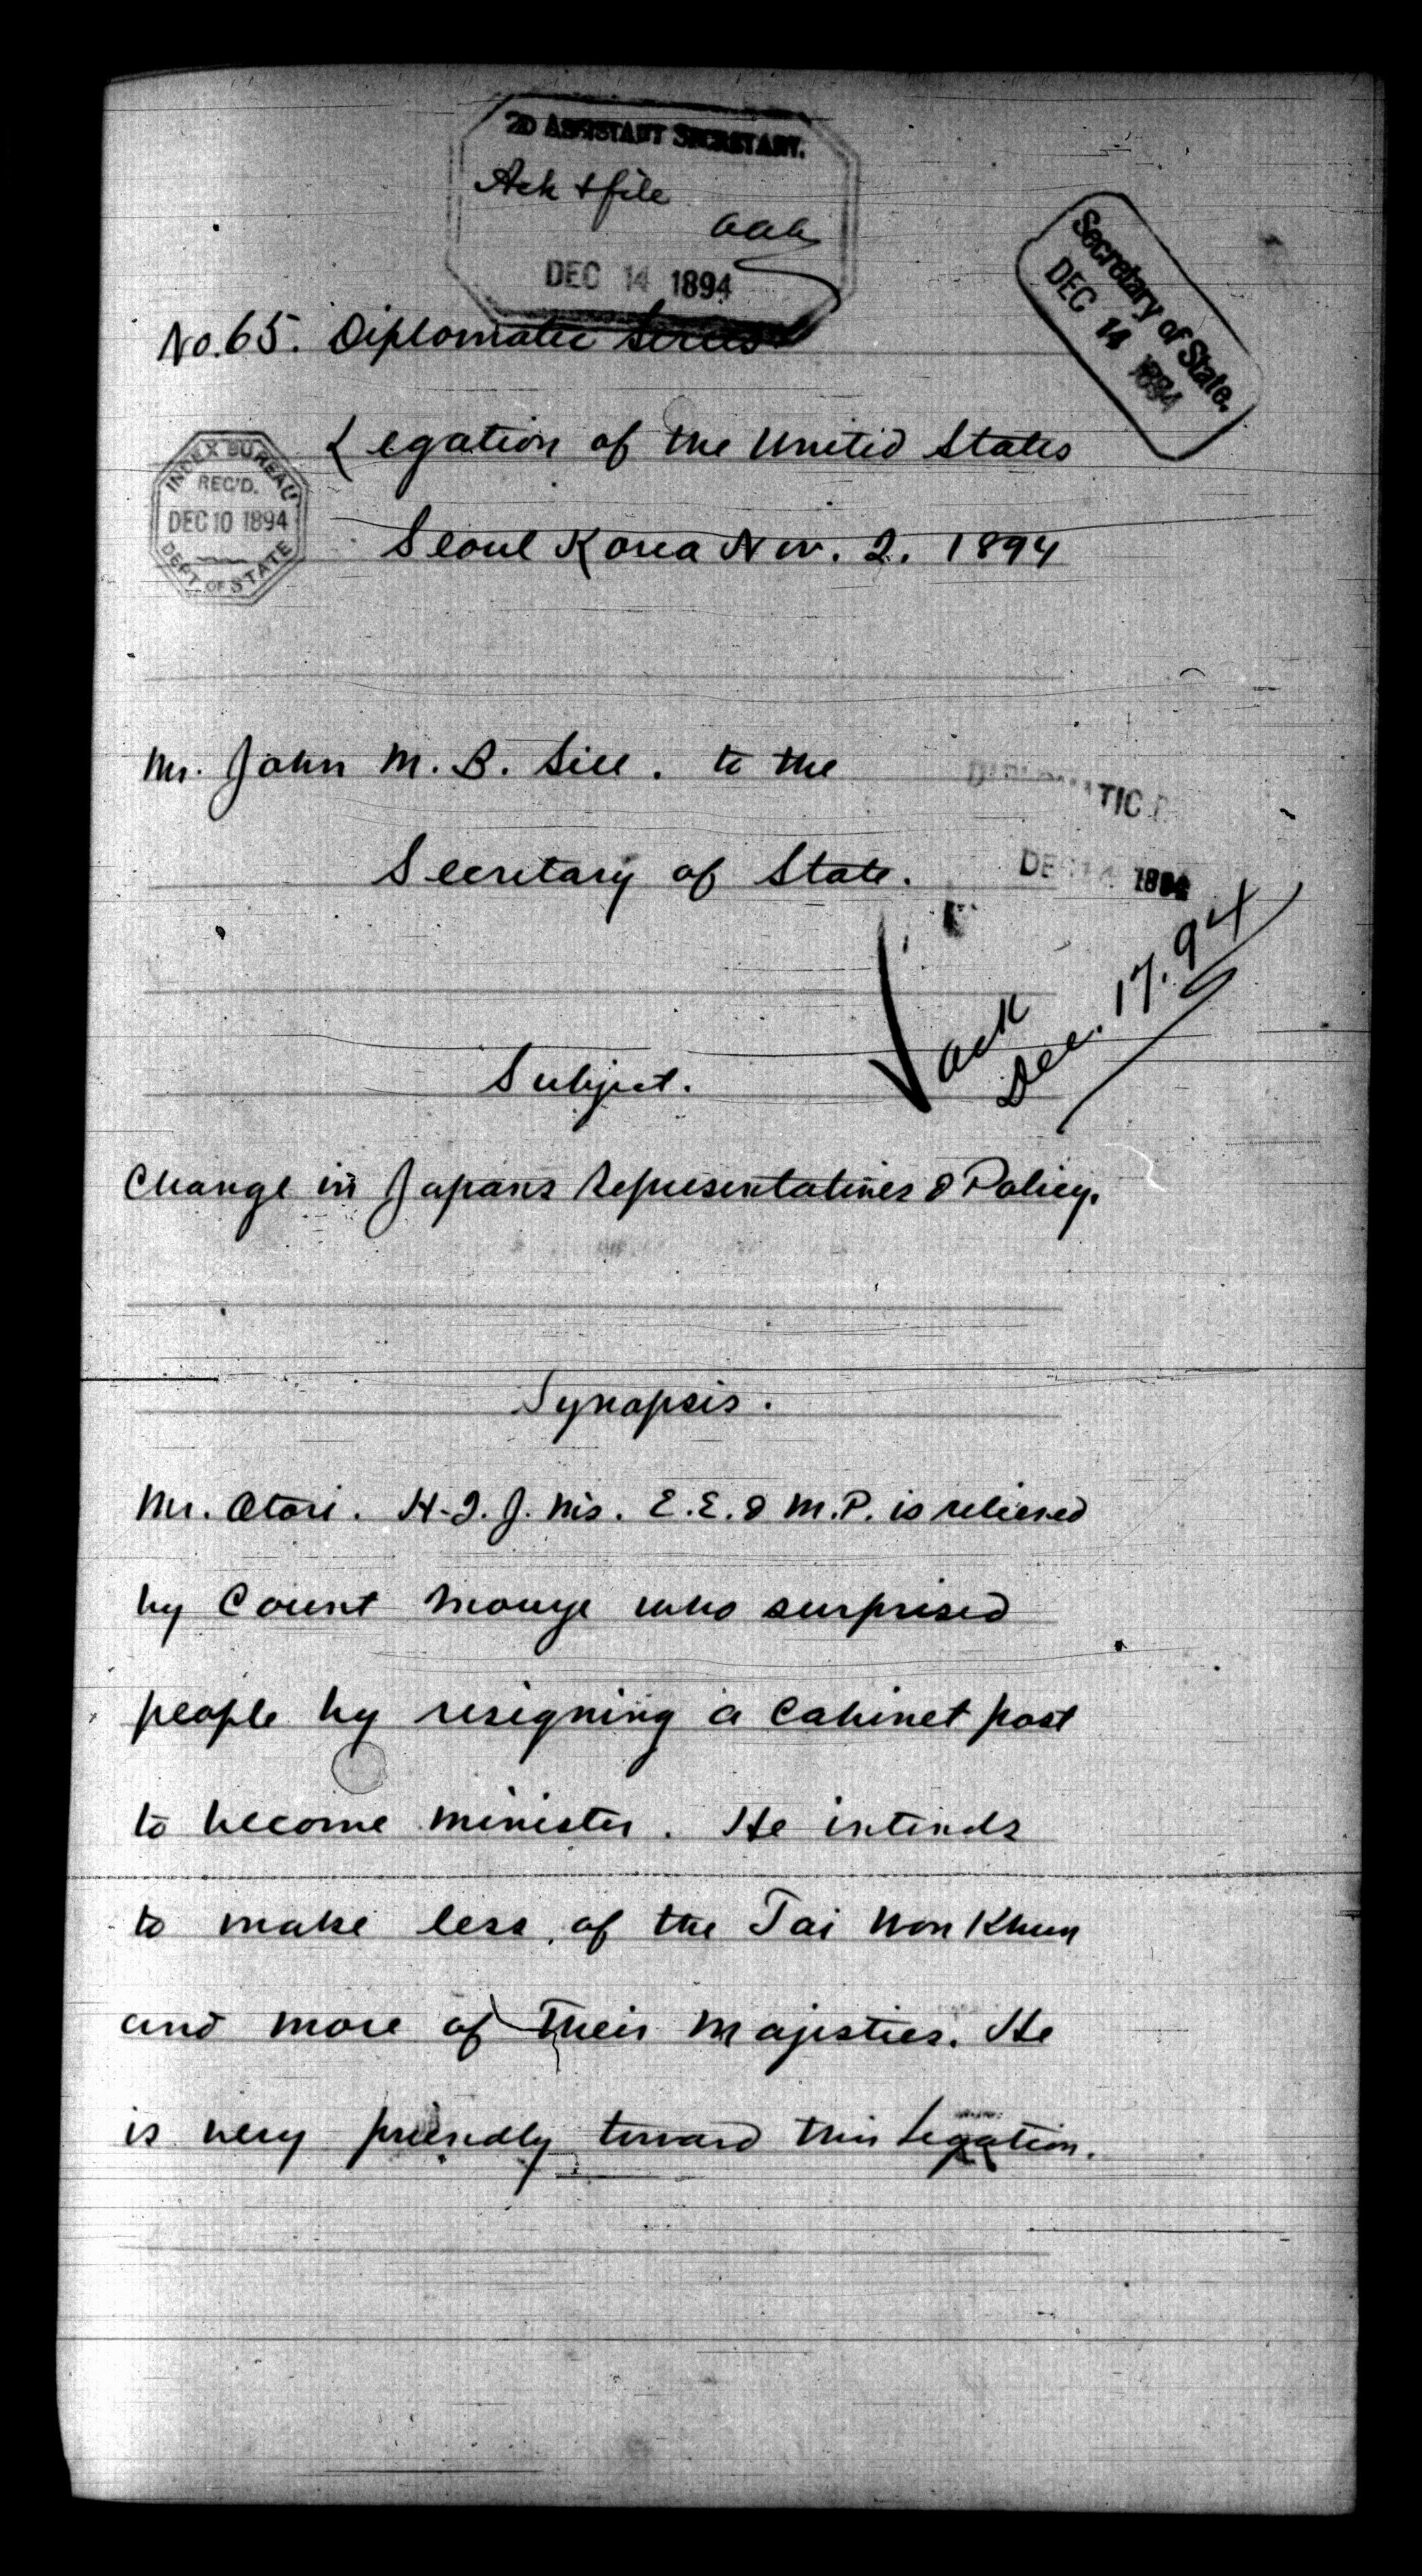 2D ASSISTANT SECRETARY.
Ack & file
aaa
DEC 14 1894
Secretary of State.
DEC 14 1894
No. 65. Diplomatic Series
Legation of the United States
INDEX BUREAU
REC'D.
DEC 10 1894
DEPT. OF STATE
Seoul Korea Nov. 2. 1894
Mr. John M. B. Sill. to the
Secretary of State.
1894
Ack
Dec. 17. 94
Subject.
Change in Japans Representatives & Policy.
Synopsis.
Mr. Otori. H.I.J. Ms. E.E. & M.P. is relieved
by Count Inouye who surprised
people by resigning a Cabinet post
to become minister. He intends
to make less of the Tai Won Khun
and more of Their Majesties. He
is very friendly toward this Legation.